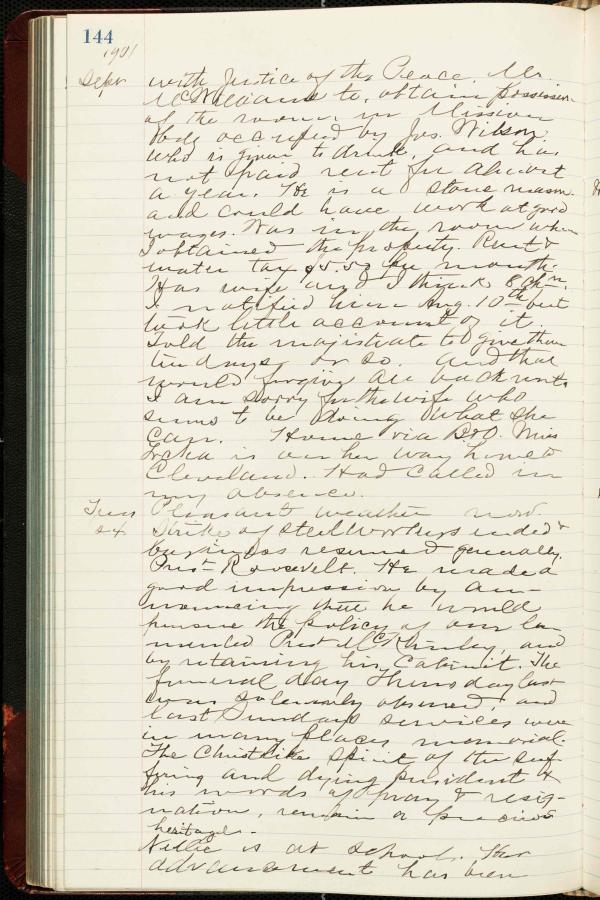 144
1901
Sepr with Justice of the Peace, Mr.
McWilliams to, obtain possession
of the rooms in Mission
Bldg occupied by Jos. Wilson,
who is given to drink, and has
not paid rent for almost
a year. He is a stone mason
and could have work at good
wages. Was in the room when
I obtained the property. Rent &
water tax $5.50 per month.
Has wife and I think 8 chn.
I notified him Aug. 10th but
took little account of it.
Told the majistrate to give them
ten days or so. and that
would forgive all back rents
I am sorry for the wife who
seems to be doing what she
can. Home via B&O. Miss
is on her way home to
Cleveland. Had called in
my absence.
Tues Pleasant weather now.
24 Strike of steel workers ended &
business resumed generally.
Prest Roosevelt. He made a
good impression by an-
nouncing that he would
pursue the policy of our la-
mented Prest McKinley, and
by retaining his Cabinet. The
funeral day Thursday last
was solemnly observed, and
last Sunday services were
in many places memorial.
The Christlike spirit of the suf-
fering and dying president &
his words of pray & resig-
nation, remain a precious
heritage.
Nellie is at school. Her
advancement has been